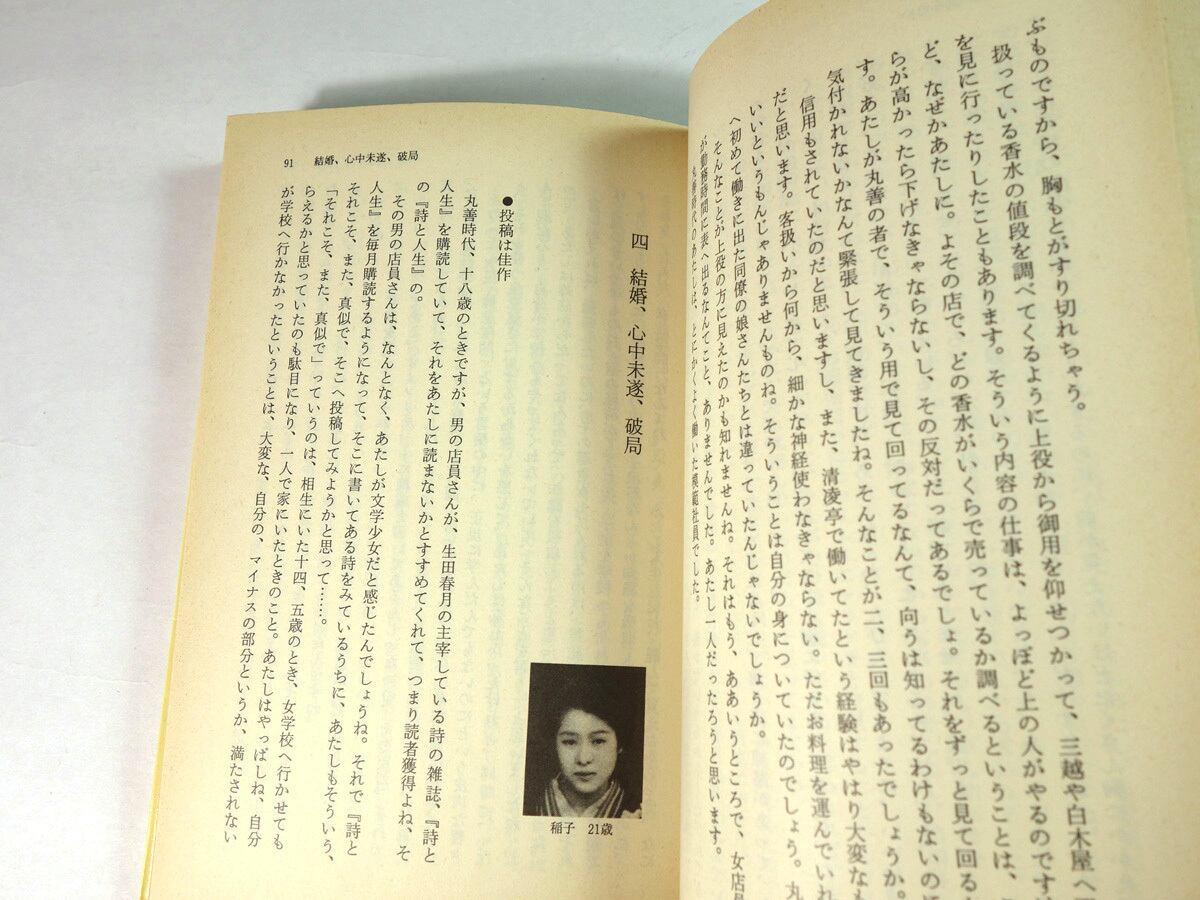 ぶものですから、胸もとがすり切れちゃう。
扱っている香水の値段を調べてくるように上役から御用を仰せつかって、三越や白木屋へ
を見に行ったりしたこともあります。そういう内容の仕事は、よっぽど上の人がやるのです
ど、なぜかあたしに。よその店で、どの香水がいくらで売っているか調べるということは、
らが高かったら下げなきゃならないし、その反対だってあるでしょ。それをずっと見て回る
す。あたしが丸善の者で、そういう用で見て回ってるなんて、向うは知ってるわけもないの
気付かれないかなんて緊張して見てきましたね。そんなことが二、三回もあったでしょうか。
信用もされていたのだと思いますし、また、清凌亭で働いてたという経験はやはり大変なも
だと思います。客扱いから何から、細かな神経使わなきゃならない。ただお料理を運んでいれ
いいというもんじゃありませんものね。そういうことは自分の身についていたのでしょう。丸
へ初めて働きに出た同僚の娘さんたちとは違っていたんじゃないでしょうか。
そんなことが上役の方に見えたのかも知れませんね。それはもう、ああいうところで、女店員
が勤務時間に表へ出るなんてこと、ありませんでした。あたし一人だったろうと思います。
丸善時代のあたしは、とにかくよく働いた模範社員でした。
91 結婚、心中未遂、破局
四 結婚、心中未遂、破局
稲子 21歳
●投稿は佳作
丸善時代、十八歳のときですが、男の店員さんが、生田春月の主宰している詩の雑誌、『詩と
人生』を購読していて、それをあたしに読まないかとすすめてくれて、つまり読者獲得よね、そ
の『詩と人生』の。
その男の店員さんは、なんとなく、あたしが文学少女だと感じたんでしょうね。それで『詩と
人生』を毎月購読するようになって、そこに書いてある詩をみているうちに、あたしもそういう、
それこそ、また、真似で、そこへ投稿してみようかと思って……。
「それこそ、また、真似で」っていうのは、相生にいた十四、五歳のとき、女学校へ行かせても
らえるかと思っていたのも駄目になり、一人で家にいたときのこと。あたしはやっぱしね、自分
が学校へ行かなかったということは、大変な、自分の、マイナスの部分というか、満たされない